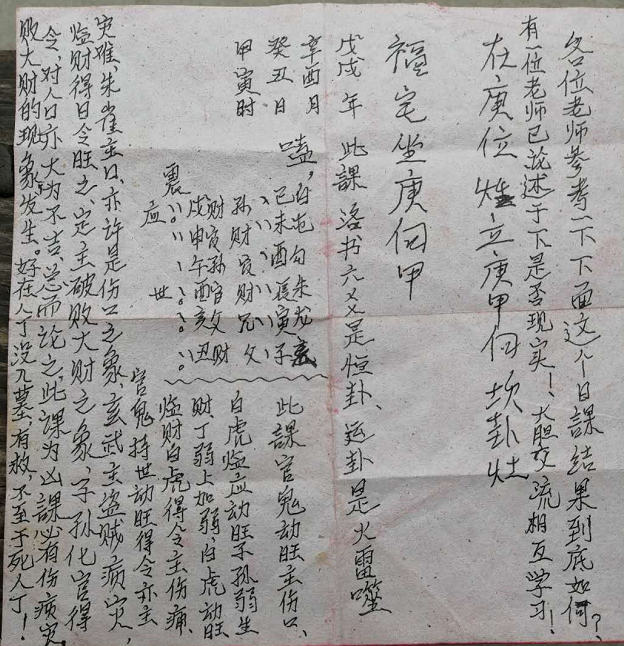 各位老师参考一下下面这个日課结果到底如何？
有一位老师已论述于下是否现实！大胆交流相互学习！
在庚位烓立庚甲向坎卦灶
福宅坐庚向甲
戊戌年 此課洛书六爻是恒卦、运卦是火雷噬
辛酉月 嗑，
癸丑日
甲寅时
白虎勾朱龙玄
己未酉辰寅子
孙财官财兄父
财官孙官父财
戌申午酉亥丑
震
应 世
此課官鬼动旺主伤口、
白虎临应动旺子孙弱生
财、丁弱上加弱，白虎动旺
临财白虎得令主伤痛、
官鬼持世动旺得令亦主
灾难，朱雀主口，亦许是伤口之象，玄武主盗贼，病灾，
临财得日令旺之，定主破败大财之象，子孙化官得
令，对人口亦大为不吉，总而论之，此課为凶課必有伤痛灾，
败大财的现象发生。好在人丁没入墓，有救，不至于死人丁！